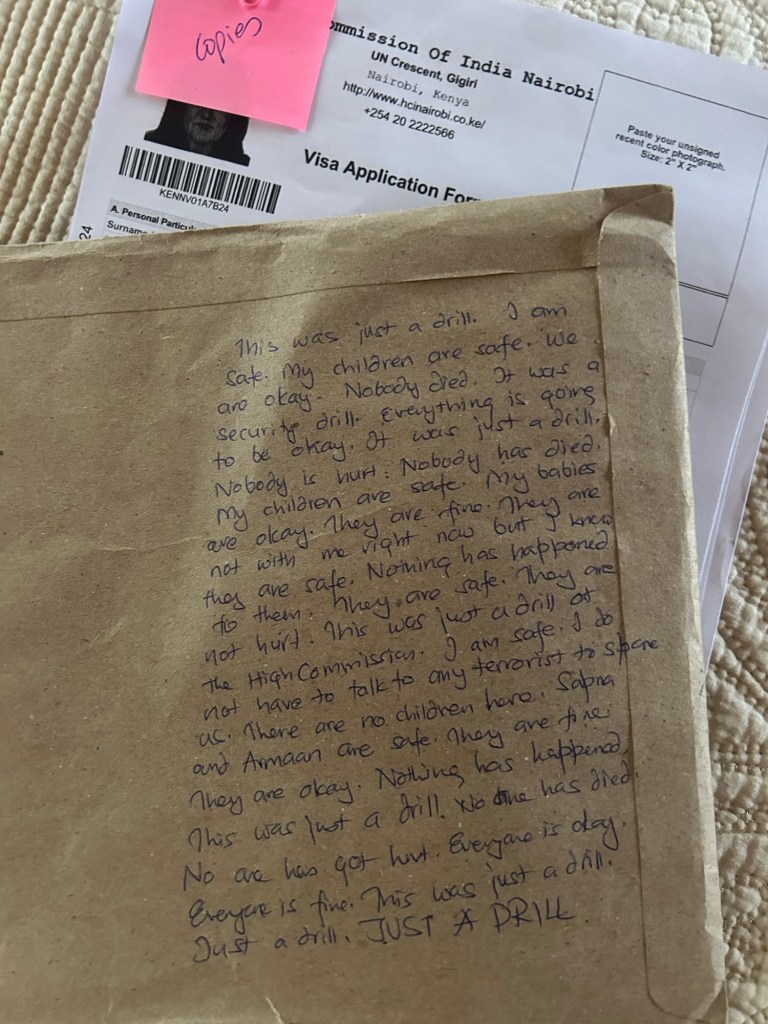 copies
ommission Of India Nairobi
UN Crescent, Gigiri
Nairobi, Kenya
http://www.hcinairobi.co.ke/
+254 20 2222566
Paste your unsigned
recent color photograph.
Size: 2" X 2"
Visa Application For
KENNV01A7B24
A. Personal Particul
Surname
24
This was just a drill. I am
safe. My children are safe. We
are okay. Nobody died. It was a
security drill. Everything is going
to be okay. It was just a drill.
Nobody is hurt. Nobody has died.
My children are safe. My babies
are okay. They are fine. They are
not with me right now but I know
they are safe. Nothing has happened
to them. They are safe. They are
not hurt. This was just a drill at
the High Commission. I am safe. I do
not have to talk to any terrorist to spare
us. There are no children here. Sapna
and Armaan are safe. They are fine.
They are okay. Nothing has happened.
This was just a drill. No one has died.
No one has got hurt. Everyone is okay.
Everyone is fine. This was just a drill.
Just a drill. JUST A DRILL.